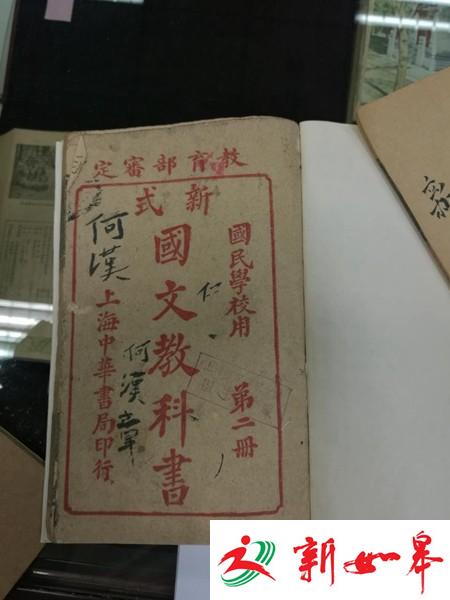 教育部審定
新式
國民學校用
第二冊
國文教科書
上海中華書局印行
何漢
仁
何漢章
新如皋